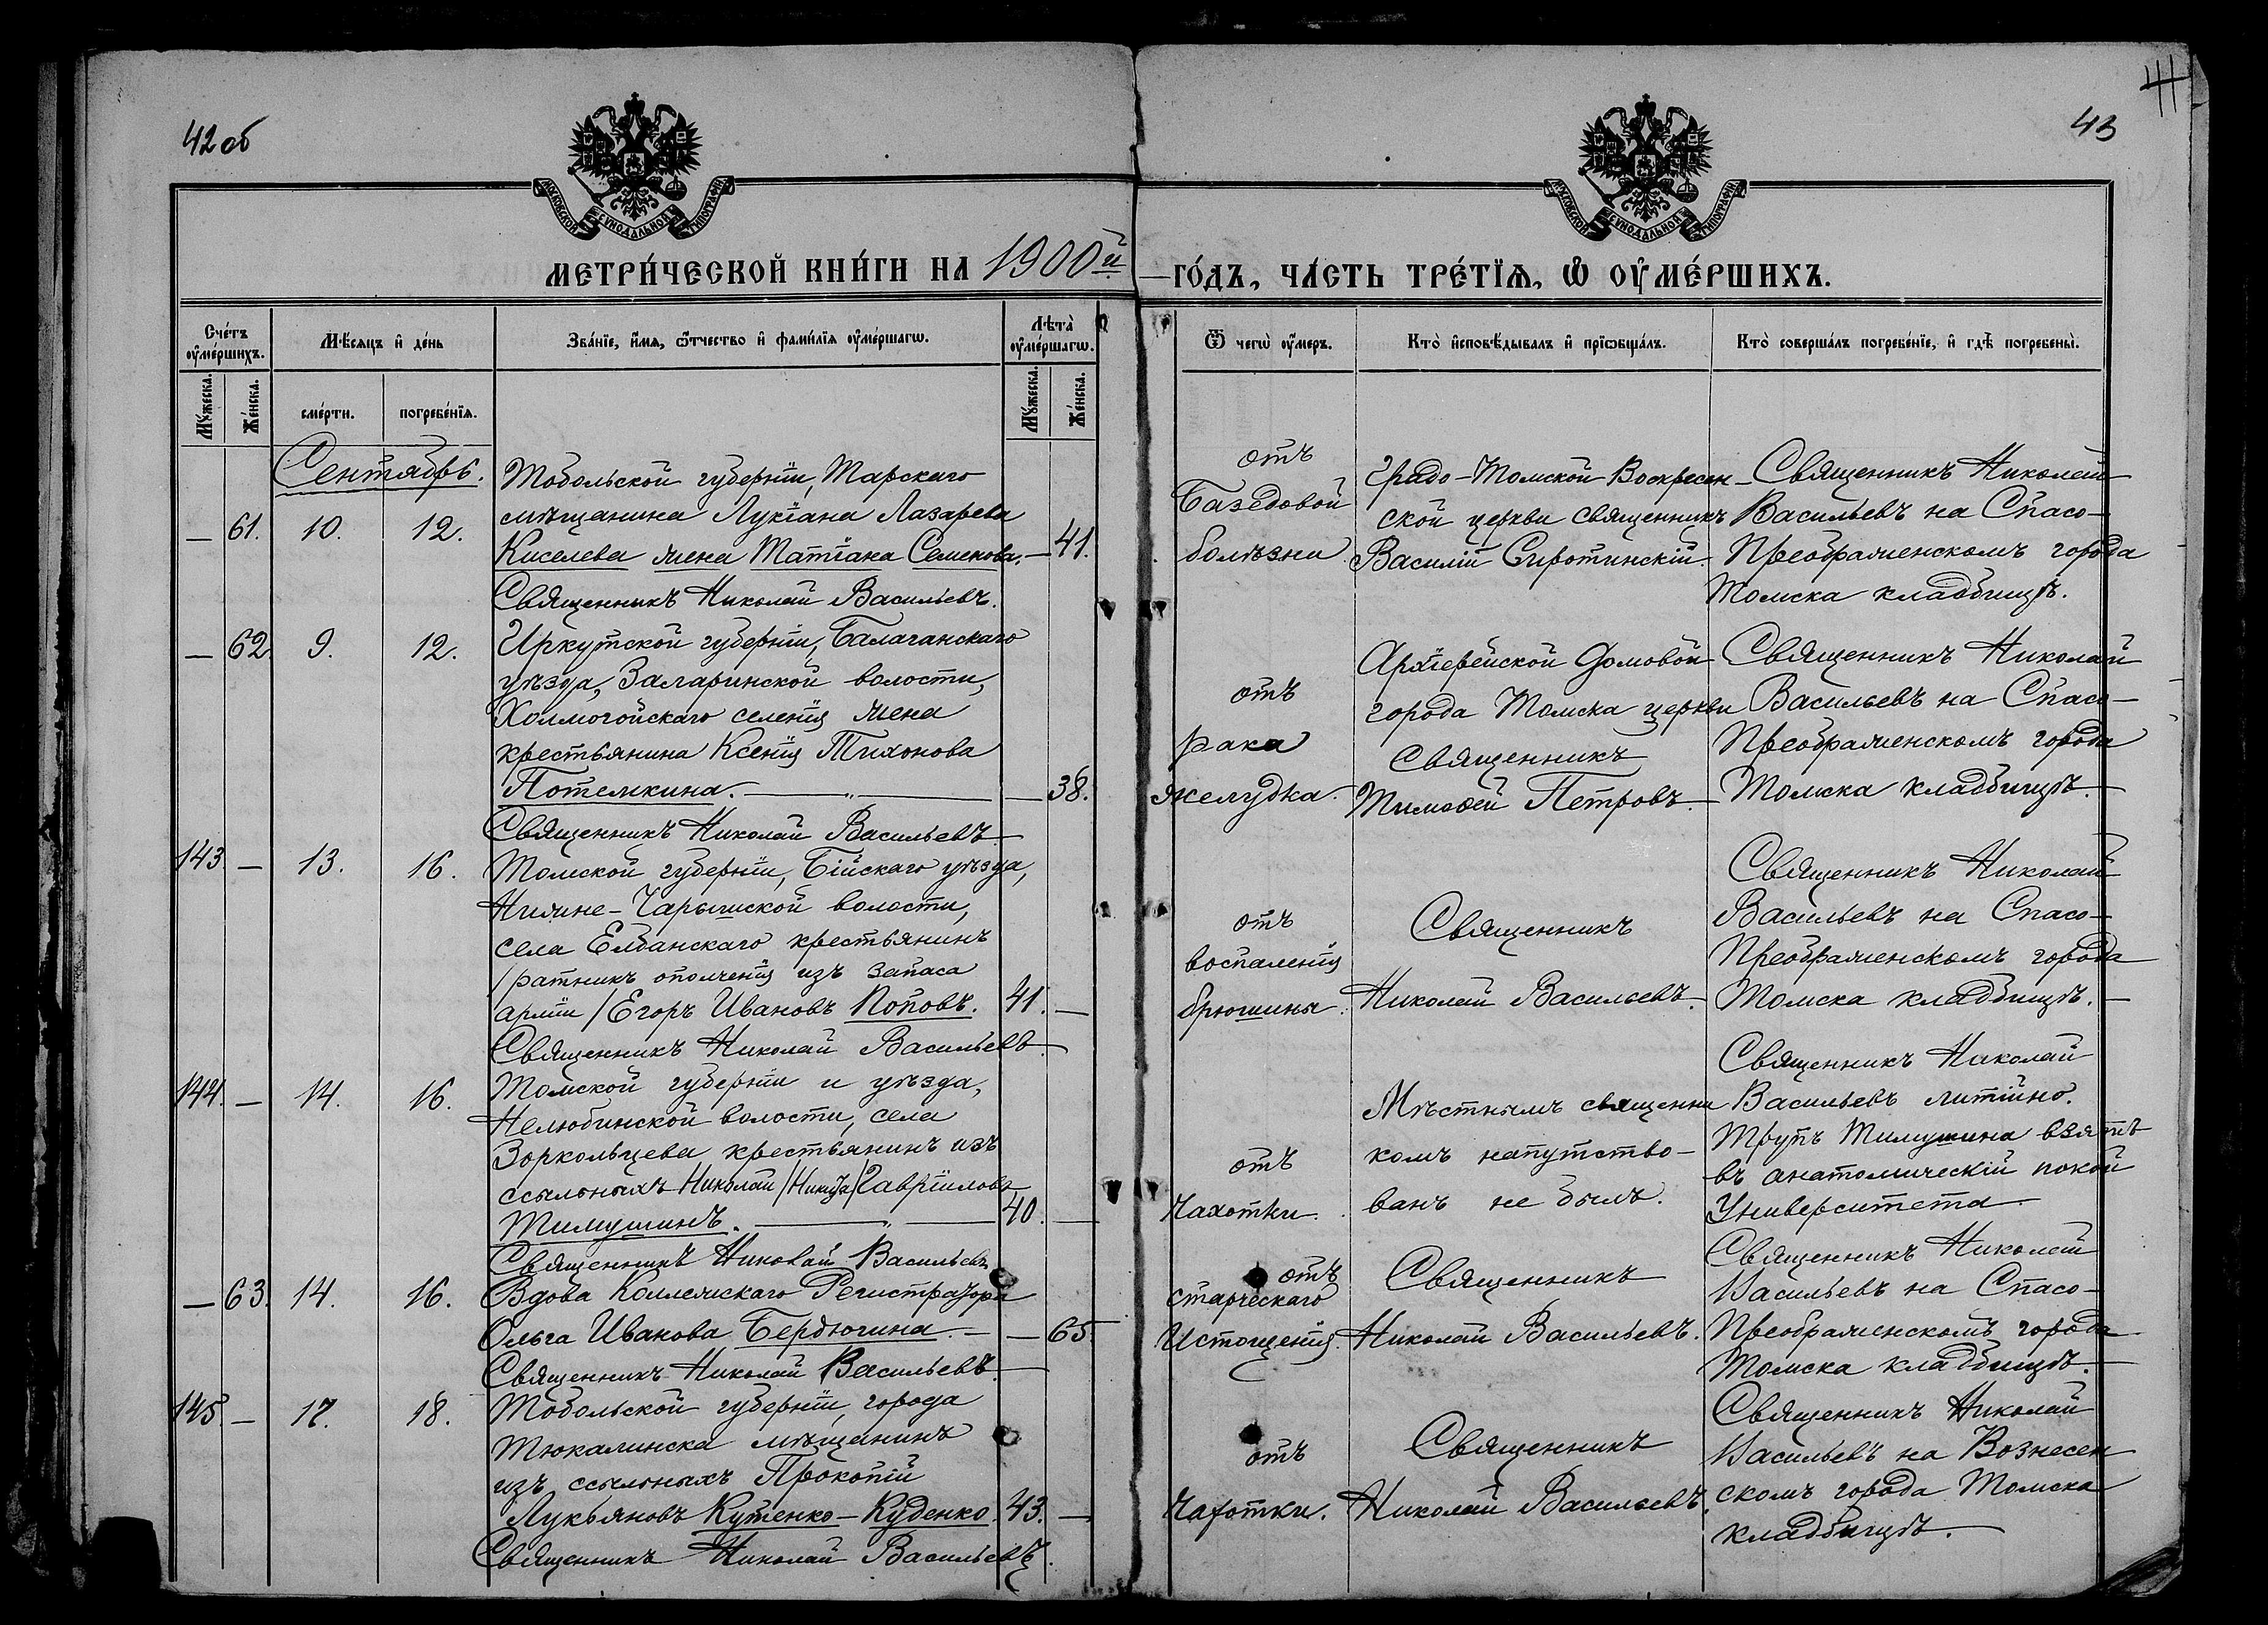 42об
43
МЕТРИ́ЧЕСКОЙ КНИ́ГИ НА 1900й
ГО́ДЪ, ЧА́СТЬ ТРЕ́ТЇѦ, Ѽ ОУ҆МЕ́РШИХЪ.
Сче́тъ оу҆ме́ршихъ.
Мꙋ́жеска.
Же́нска.
Мѣ́сяцъ и҆ де́нь
сме́рти.
погребе́нїя.
Зва́нїе, и҆́мя, ѻ҆́тчество и҆ фами́лїя оу҆ме́ршагѡ.
Лѣта̀ оу҆ме́ршагѡ.
Мꙋ́жеска.
Же́нска.
Ѿ чегѡ̀ оу҆́меръ.
Кто̀ и҆сповѣ́дывалъ и҆ прїѡбща́лъ.
Кто̀ соверша́лъ погребе́нїе, и҆ гдѣ̀ погребены̀.
Сентябрь.
— 61. 10. 12.
Тобольской губерніи, Тарскаго
мѣщанина Лукіана Лазарева
Киселева жена Татіана Семенова. — 41.
Священникъ Николай Васильевъ.
отъ
Базедовой
болѣзни
Градо-Томской Воскресен-
ской церкви священникъ
Василій Сиротинскій.
Священникъ Николай
Васильевъ на Спасо-
Преображенскомъ города
Томска кладбищѣ.
— 62. 9. 12.
Иркутской губерніи, Балаганскаго
уѣзда, Заларинской волости,
Холмогойскаго селенія жена
крестьянина Ксенія Тихонова
Потемкина. — 38.
Священникъ Николай Васильевъ
отъ
рака
желудка.
Архіерейской Домовой
города Томска церкви
Священникъ
Тимоѳей Петровъ.
Священникъ Николай
Васильевъ на Спасо-
Преображенскомъ города
Томска кладбищѣ.
143. — 13. 16.
Томской губерніи, Бійскаго уѣзда,
Нижне-Чарышской волости,
села Елбанскаго крестьянинъ
/ратникъ ополченія изъ запаса
арміи/ Егоръ Ивановъ Поповъ. 41. —
Священникъ Николай Васильевъ
отъ
воспаленія
брюшины.
Священникъ
Николай Васильевъ.
Священникъ Николай
Васильевъ на Спасо-
Преображенскомъ города
Томска кладбищѣ.
144. — 14. 16.
Томской губерніи и уѣзда,
Нелюбинской волости, села
Зоркольцева крестьянинъ изъ
ссыльныхъ Николай /Никита/ Гавріиловъ
Тимушинъ. 40. —
Священникъ Николай Васильевъ
отъ
Чахотки.
Мѣстнымъ священни
комъ напутство-
ванъ не былъ.
Священникъ Николай
Васильевъ литійно.
Трупъ Тимушина взятъ
въ анатомическій покой
Университета
— 63. 14. 16.
Вдова Коллежскаго Регистратора
Ольга Иванова Бердюгина. — 65.
Священникъ Николай Васильевъ
отъ
старческаго
Истощенія.
Священникъ
Николай Васильевъ.
Священникъ Николай
Васильевъ на Спасо-
Преображенскомъ города
Томска кладбищѣ.
145. — 17. 18.
Тобольской губерніи, города
Тюкалинска мѣщанинъ
изъ ссыльныхъ Прокопій
Лукьяновъ Кутенко-Куденко. 43. —
Священникъ Николай Васильевъ.
отъ
Чахотки.
Священникъ
Николай Васильевъ.
Священникъ Николай
Васильевъ на Вознесен
скомъ города Томска
кладбищѣ.